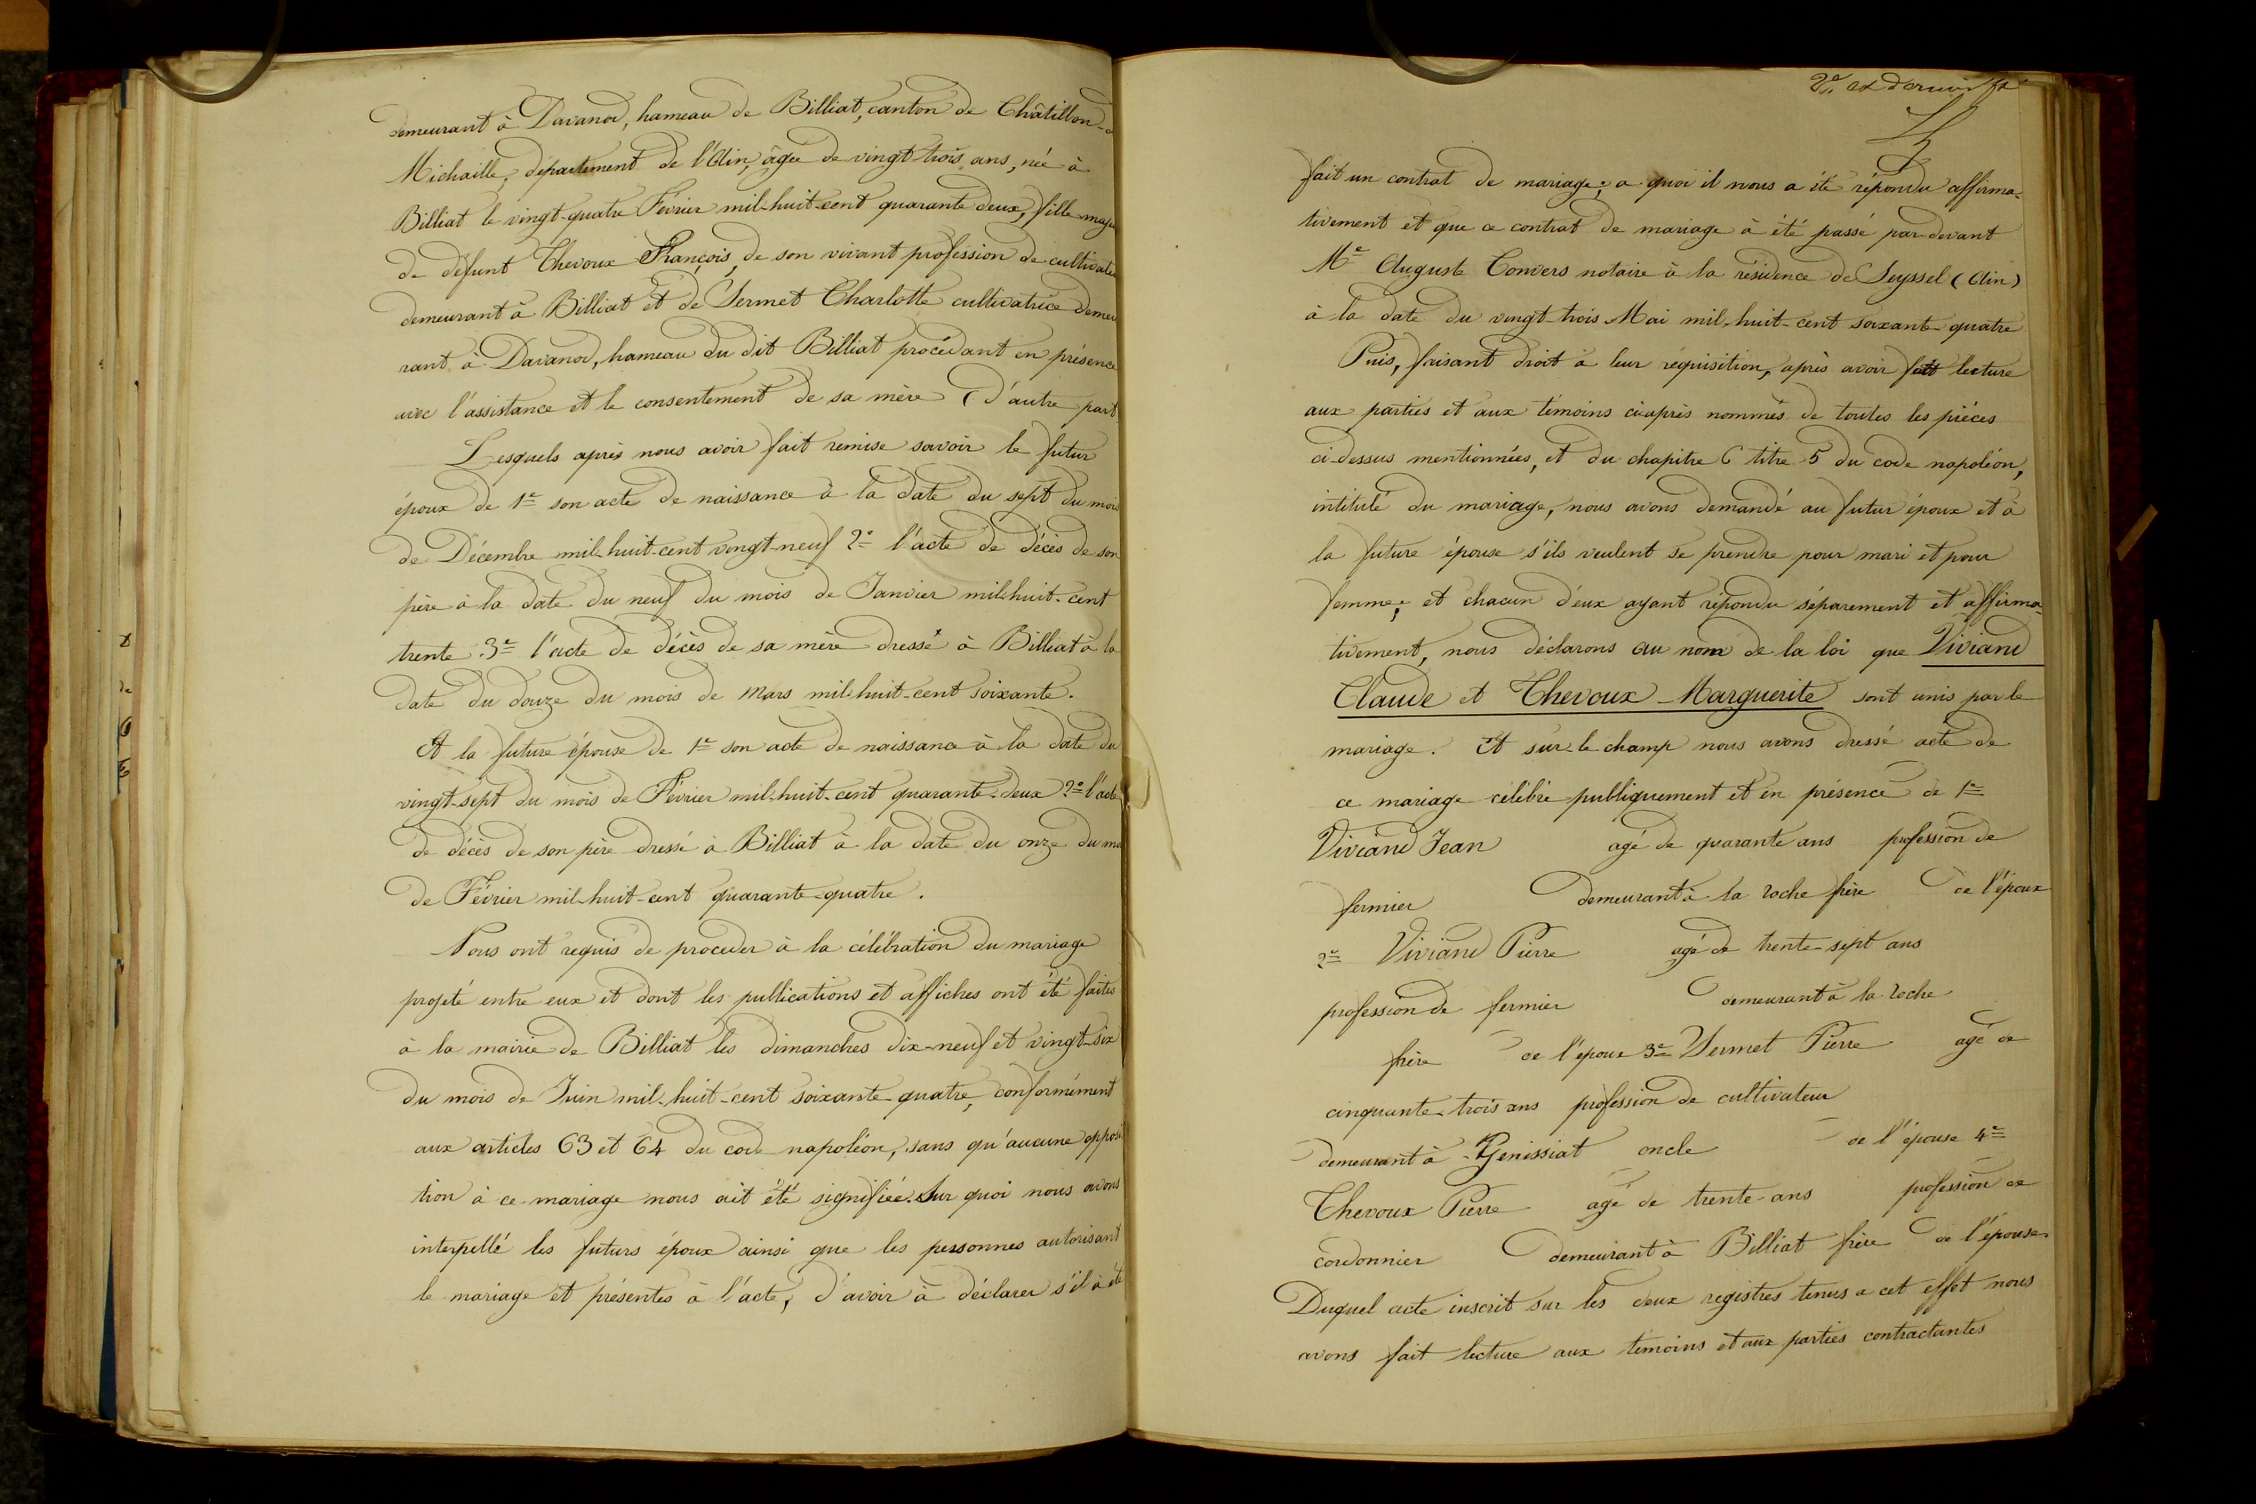 demeurant à Davanod, hameau de Billiat, canton de Châtillon-d
Michaille, département de l'Ain, âgée de vingt trois ans, née à
Billiat le vingt-quatre Février mil-huit-cent quarante deux, fille maje
de défunt Thevoux François, de son vivant profession de cultivate
demeurant à Billiat et de Sermet Charlotte cultivatrice demeu
rant à Davanod, hameau du dit Billiat procédant en présence
avec l'assistance et le consentement de sa mère d'autre part
Lesquels après nous avoir fait remise savoir le futur
époux de 1e son acte de naissance à la date du sept du mois
de Décembre mil-huit-cent vingt-neuf 2e l'acte de décès de son
père à la date du neuf du mois de Janvier mil-huit-cent
trente 3e l'acte de décès de sa mère dressé à Billiat à la
date du douze du mois de Mars mil-huit-cent soixante.
Et la future épouse de 1e son acte de naissance à la date du
vingt-sept du mois de Février mil-huit-cent quarante-deux 2e l'acte
de décès de son père dressé à Billiat à la date du onze du mo
de Février mil-huit-cent quarante-quatre.
Nous ont requis de proceder à la célébration du mariage
projeté entre eux et dont les publications et affiches ont été faites
à la mairie de Billiat les dimanches dix-neuf et vingt-six
du mois de Juin mil-huit-cent soixante-quatre, conformément
aux articles 63 et 64 du code napoléon, sans qu'aucune opposi
tion à ce mariage nous ait été signifiée. Sur quoi nous avons
interpellé les futurs époux ainsi que les personnes autorisant
le mariage et présentes à l'acte, d'avoir à déclarer s'il a été
2e et dernier
fait un contrat de mariage; a quoi il nous a été répondu affirma-
tivement et que ce contrat de mariage à été passé par-devant
Me Auguste Convers notaire à la résidence de Seyssel (Ain)
à la date du vingt-trois Mai mil-huit-cent soixante-quatre
Puis, faisant droit à leur réquisition, après avoir fait lecture
aux parties et aux témoins ci-après nommés de toutes les pièces
ci-dessus mentionnées, et du chapitre 6 titre 5 du code napoléon,
intitulé du mariage, nous avons demandé au futur époux et à
la future épouse s'ils veulent se prendre pour mari et pour
femme; et chacun d'eux ayant répondu séparement et affirma-
tivement, nous déclarons au nom de la loi que Viviand
Claude et Thevoux-Marguerite sont unis par le
mariage. Et sur-le champ nous avons dressé acte de
ce mariage célébré publiquement et en présence de 1e
Viviand Jean agé de quarante ans profession de
fermier demeurant à la roche frère de l'époux
2e Viviand Pierre agé de trente-sept ans
profession de fermier demeurant à la roche
frère de l'époux 3e Sermet Pierre agé de
cinquante-trois ans profession de cultivateur
demeurant à Genissiat oncle de l'épouse 4e
Thevoux Pierre agé de trente-ans profession de
cordonnier demeurant à Billiat frère de l'épouse.
Duquel acte inscrit sur les deux registres tenus a cet effet nous
avons fait lecture aux témoins et aux parties contractantes